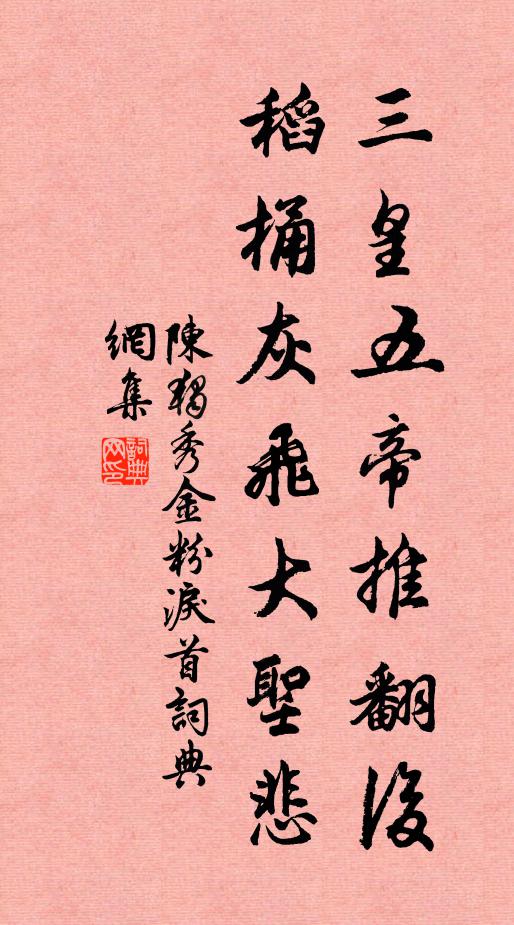 三皇五帝推翻後
稻桶灰飛大聖悲
陳獨秀金粉淚首詞典
網集
詞典
網印